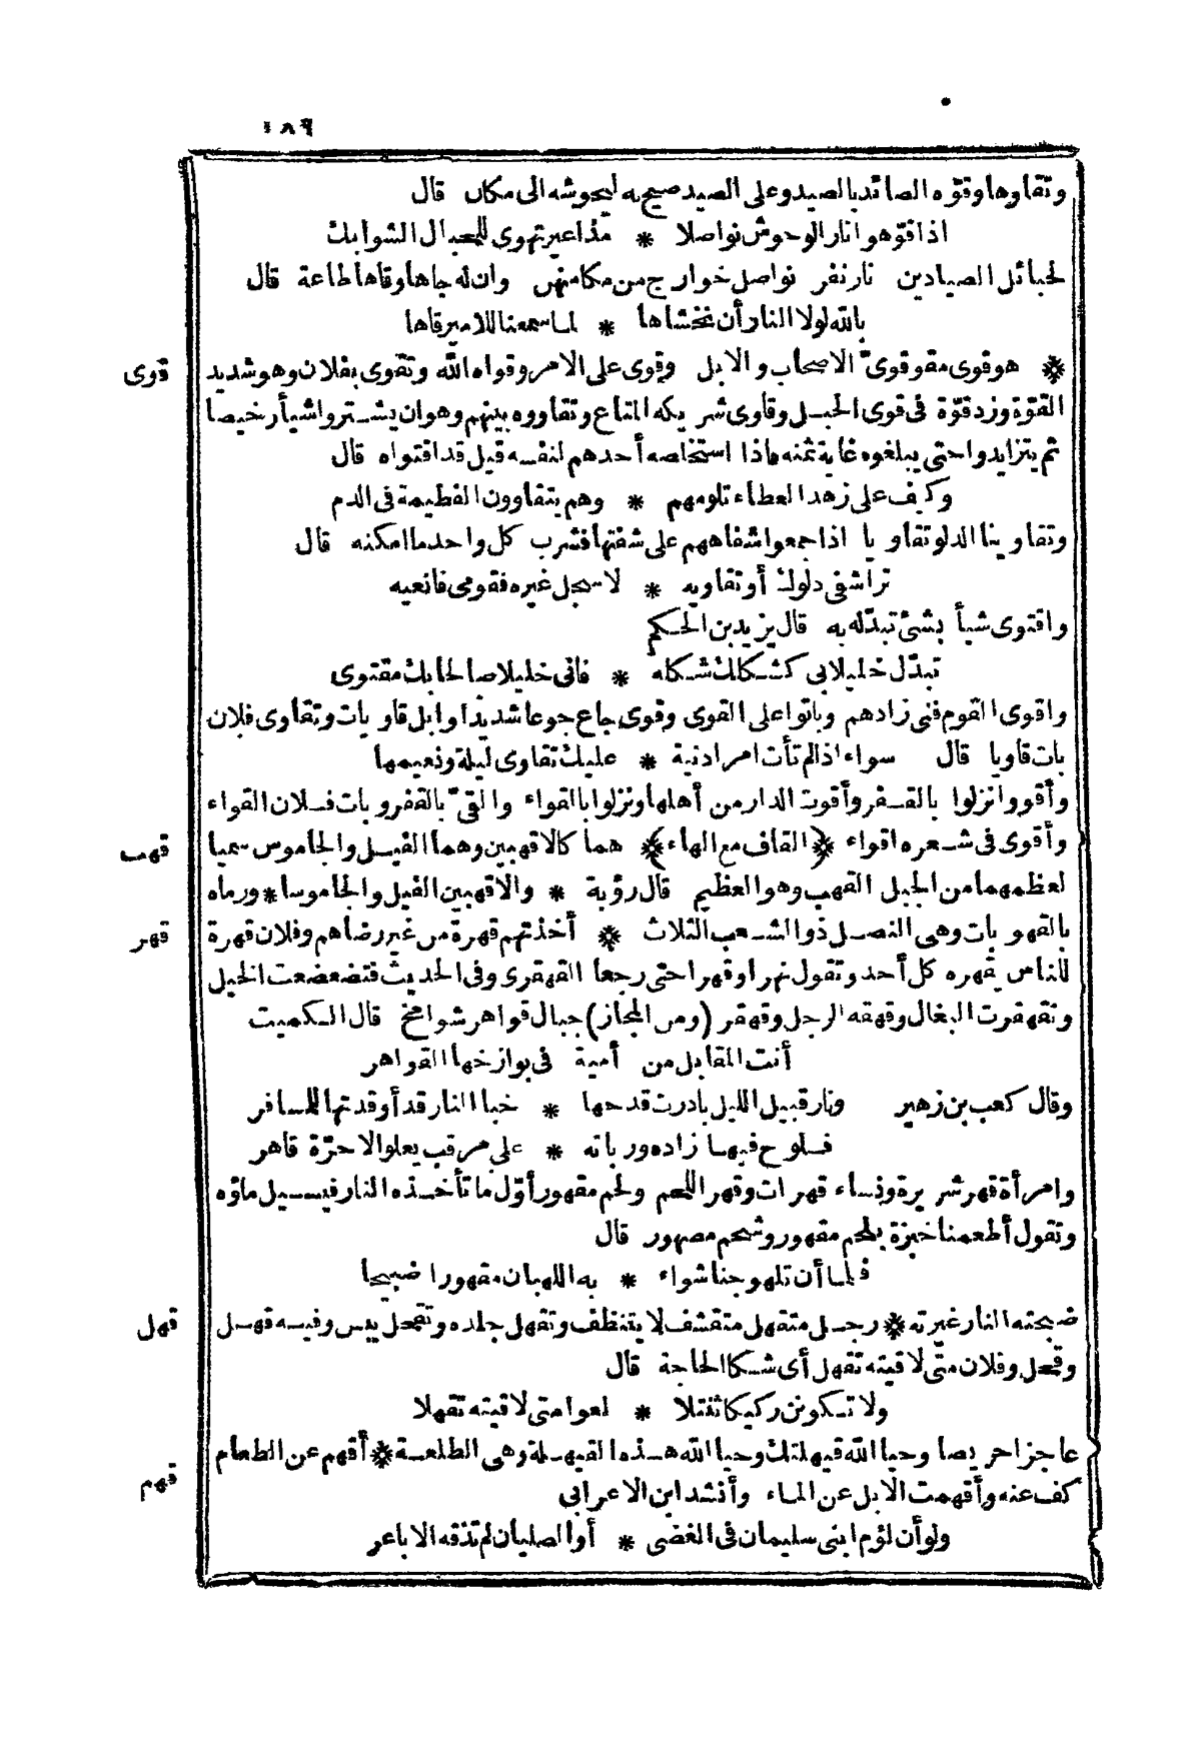 ١٨٩
وتقاوها وقوّه الصائد بالصيد وعلى الصيد صيح به ليحوشه الى مكان قال
اذا قوّهوا نار الوحوش نواصلا * مذاعير تهوى للحبال الشوابك
لحبائل الصيادين نار نفر نواصل خوارج من مكامنهن وان له جاها وقاها طاعة قال
بالله لولا النار أن نخشاها * لما سمعنا للامير قاها
* هو قوى مقو قوىّ الاصحاب والابل وقوى على الامر وقواه الله وتقوى بفلان وهو شديد
قوى
القوّة وزد قوّة فى قوى الحبل وقاوى شريكه المتاع وتقاووه بينهم وهو ان يشتروا شيأ رخيصا
ثم يتزايدوا حتى يبلغوه غاية ثمنه فاذا استخلصه أحدهم لنفسه قيل قد اقتواه قال
وكيف على زهد العطاء تلومهم * وهم يتقاوون الفطيمة فى الدم
وتقاوينا الدلو تقاويا اذا جمعوا شفاههم على شفتها فشرب كل واحد ما امكنه قال
تراشفى دلوك أو تقاويه * لا سجل غيره فقومى فانعيه
واقتوى شيأ بشئ تبدّله به قال يزيد بن الحكم
تبدّل خليلا بى كشكلك شكله * فانى خليلا صالحا بك مقتوى
واقوى القوم فنى زادهم وباتوا على القوى وقوى جاع جوعا شديدا وابل قاويات وتقاوى فلان
بات قاويا قال سواء اذا لم تأت امرا دنية * عليك تقاوى ليلة ونعيمها
وأقووا نزلوا بالقفر وأقوت الدار من أهلها ونزلوا بالقواء والقىّ بالقفر وبات فلان القواء
وأقوى فى شعره اقواء ﴿القاف مع الهاء﴾ هما كالاقهبين وهما الفيل والجاموس سميا
قهب
لعظمهما من الجبل القهب وهو العظيم قال رؤبة * والاقهبين الفيل والجاموسا * ورماه
بالقهوبات وهى النصل ذو الشعب الثلاث * أخذتهم قهرة من غير رضاهم وفلان قهرة
قهر
للناس يقهره كل أحد وتقول نهرا وقهرا حتى رجعا القهقرى وفى الحديث فتضعضعت الخيل
وتقهقرت البغال وقهقه الرجل وقهقر (ومن المجاز) جبال قواهر شوامخ قال الكميت
أنت المقابل من أمية فى بواذخها القواهر
وقال كعب بن زهير ونار قبيل الليل بادرت قدحها * خبا النار قد أوقدتها للمسافر
فلوح فيها زاده وربأته * على مرقب يعلو الاحزّة قاهر
وامرأة قهر شريرة ونساء قهرات وقهر اللحم ولحم مقهور أوّل ما تأخذه النار فيسيل ماؤه
وتقول أطعمنا خبزة بلحم مقهور وشحم مصهور قال
فلما أن تلهوجنا شواء * به اللهبان مقهورا ضبيحا
ضبحته النار غيرته * رجل متقهل متقشف لا يتنظف وتقهل جلده وتقحل يبس وفيه قهل
قهل
وقحل وفلان متى لاقيته تقهل أى شكا الحاجة قال
ولا تكونن ركيكا ثنتلا * لعوا متى لاقيته تقهلا
عاجزا حريصا وحيا الله قيهلتك وحيا الله هذه القيهلة وهى الطلعة * أقهم عن الطعام
قهم
كف عنه وأقهمت الابل عن الماء وأنشد ابن الاعرابى
ولو أن لؤم ابنى سليمان فى الغضى * أو الصليان لم تذقه الاباعر